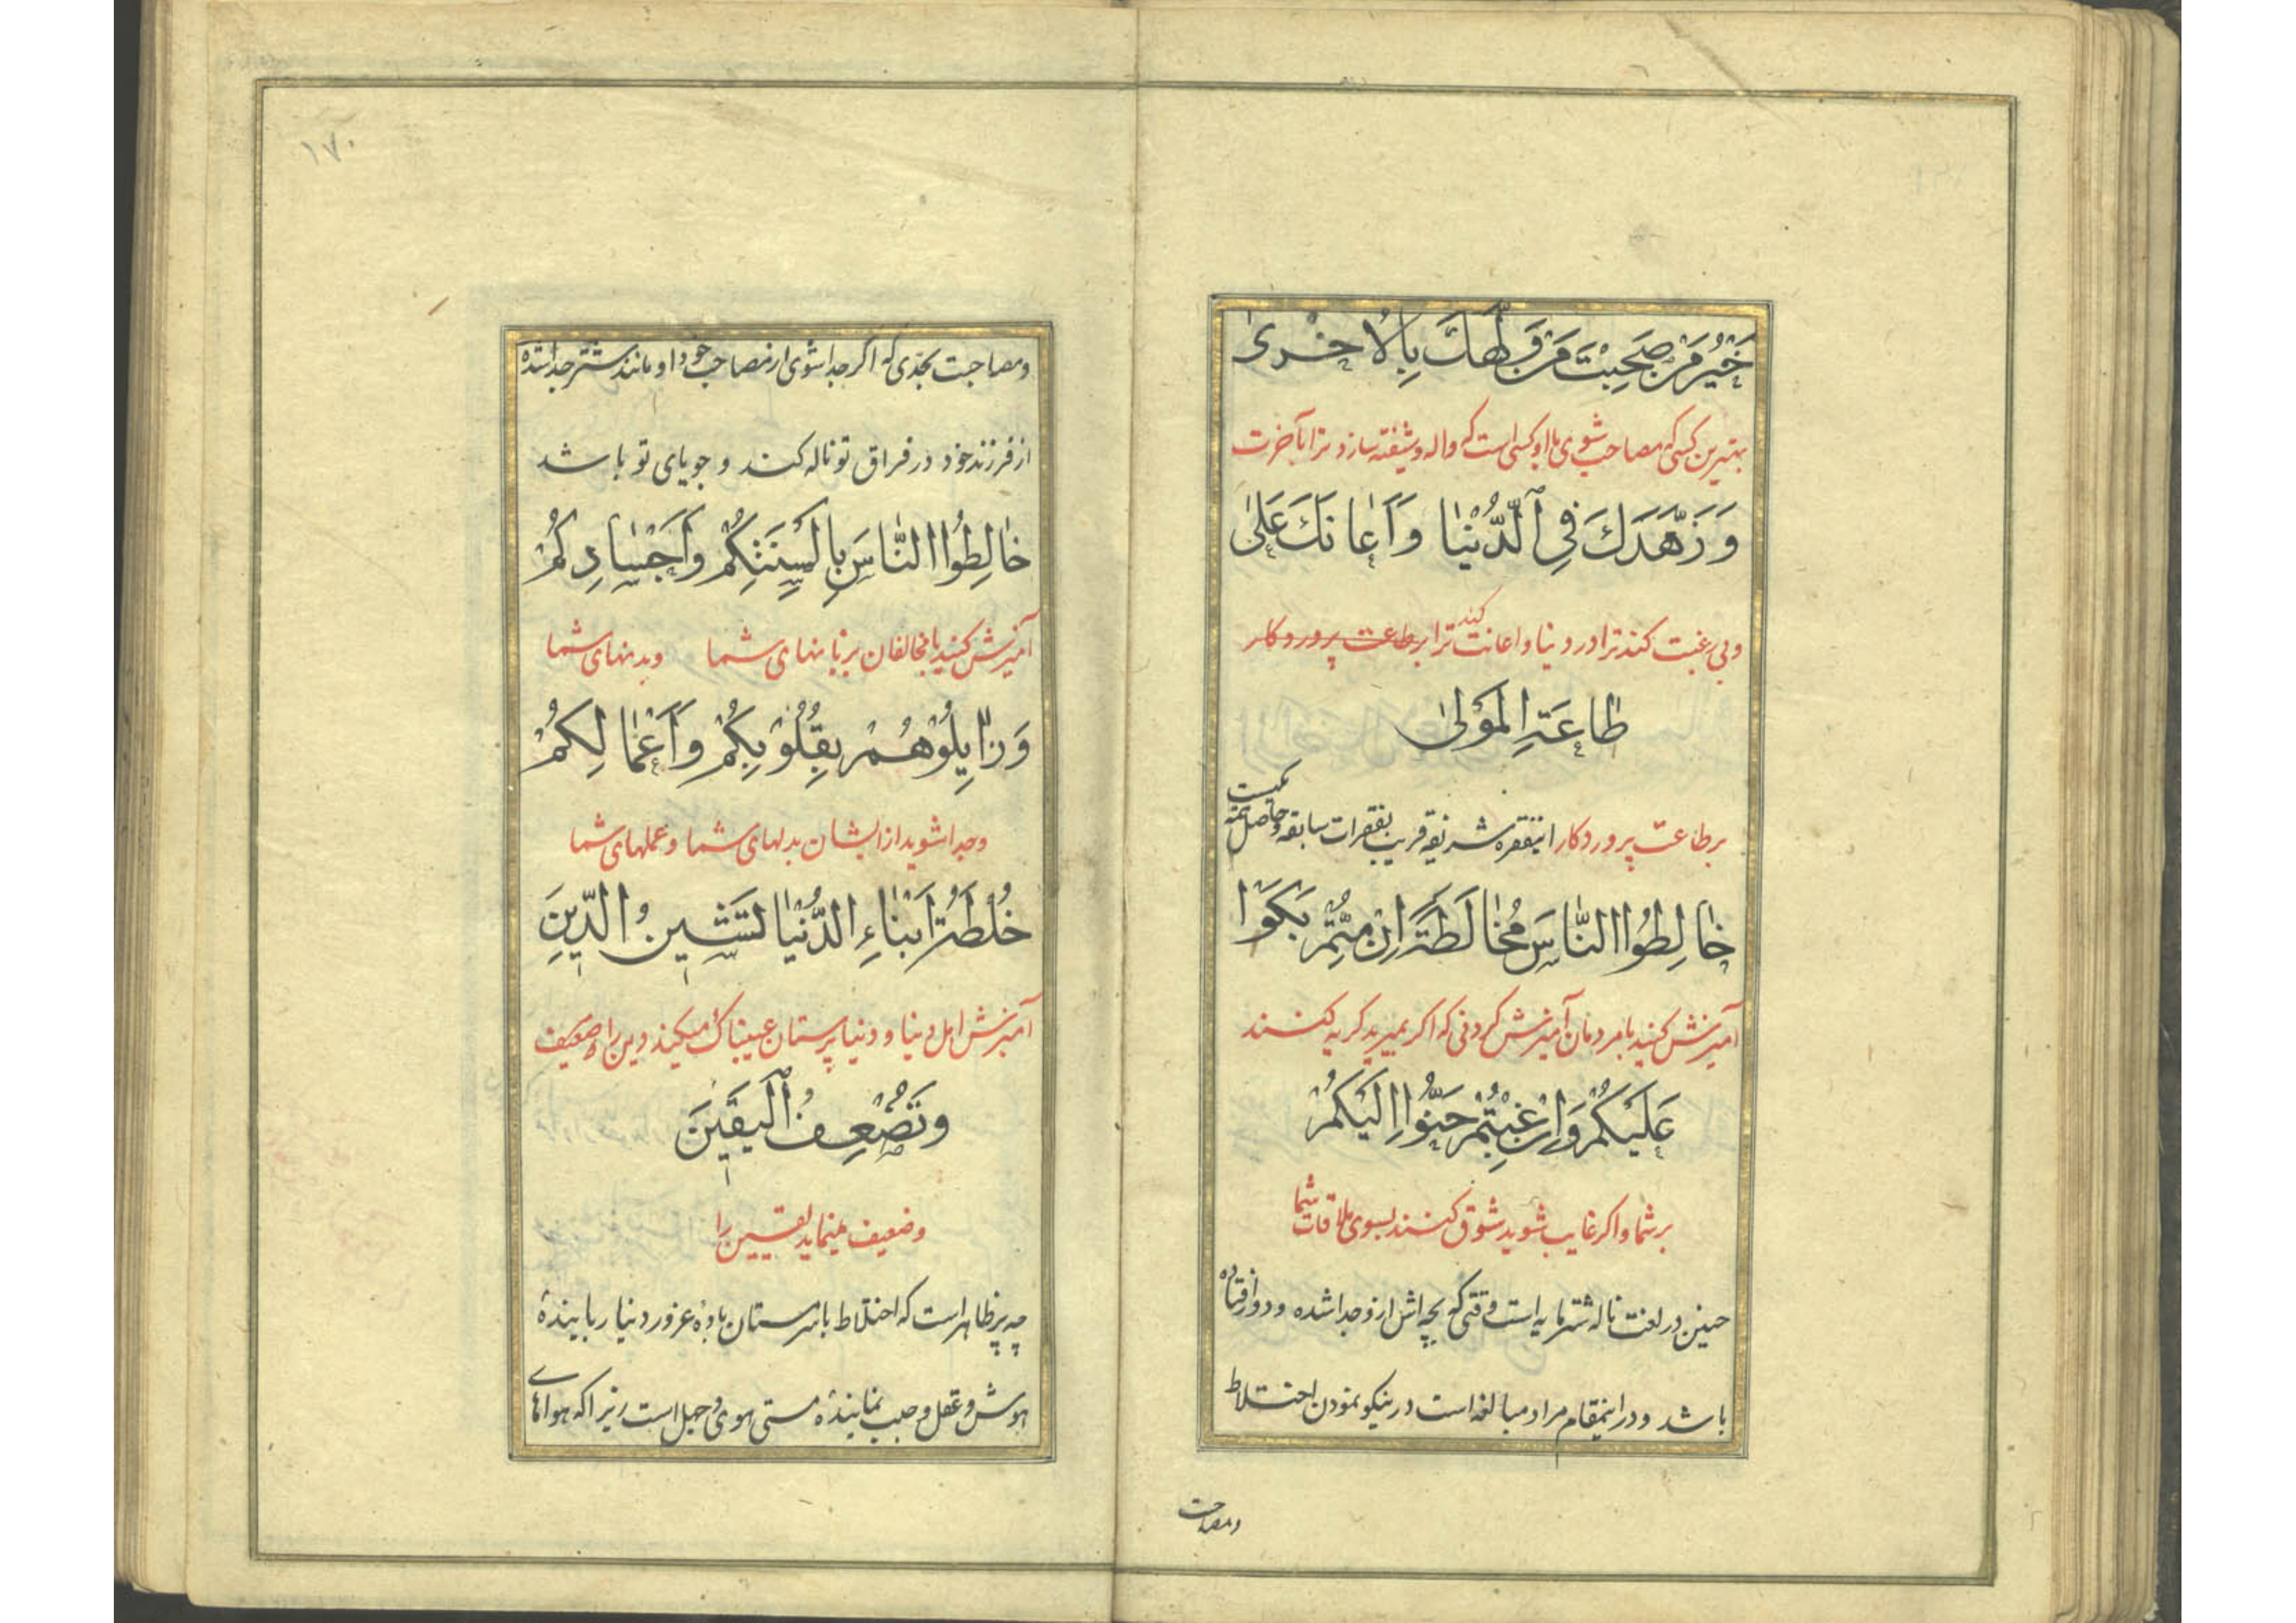 خَيْرُ مَنْ صَحِبْتَ مَنْ وَلَّهَكَ بِالْاُخْرىٰ
بهترین کسی که مصاحب شوی با او کسی است که واله و شیفته سازد ترا بآخرت
وَ زَهَّدَكَ فِی الدُّنْیٰا وَ اَعٰانَكَ عَلیٰ
و بی رغبت کند ترا در دنیا و اعانت کند ترا بر طاعت پروردکار
طٰاعَةِ الْمَوْلیٰ
بر طاعت پروردکار اینفقره شریفه قریب بفقرات سابقه و حاصل همه یکیست
خٰالِطُوا النّٰاسَ مُخٰالَطَةً اِنْ مِتُّمْ بَكَوْا
آمیزش کنید با مردمان آمیزش کردنی که اکر بمیرید کریه کنند
عَلَیْكُمْ وَ اِنْ غِبْتُمْ حَنُّوا اِلَیْكُمْ
بر شما و اکر غایب شوید شوق کنند بسوی ملاقات شما
حنین در لغت ناله شتر مایه است وقتی که بچه اش ازو جدا شده و دور افتاده
باشد و در اینمقام مراد مبالغه است در نیکو نمودن اختلاط
ومصاحبت
١٧٠
و مصاحبت بحدّی که اکر جدا شوی از مصاحب خود او مانند شتر جدا شده
از فرزند خود در فراق تو ناله کند و جویای تو باشد
خٰالِطُوا النّٰاسَ بِاَلْسِنَتِكُمْ وَ اَجْسٰادِكُمْ
آمیزش کنید با مخالفان بزبانهای شما و بدنهای شما
وَ زٰایِلُوْهُمْ بِقُلُوْبِكُمْ وَ اَعْمٰالِكُمْ
و جدا شوید از ایشان بدلهای شما و عملهای شما
خُلْطَةُ اَبْنٰاءِ الدُّنْیٰا تَشیٖنُ الدّیٖنَ
آمیزش اهل دنیا و دنیا پرستان عیبناك میکند دین را
وَ تُضْعِفُ الْیَقیٖنَ
و ضعیف مینماید یقین را
چه پر ظاهر است که اختلاط با سرمستان بادهٔ غرور دنیا ربایندهٔ
هوش و عقل و جلب نمایندهٔ مستی هوی و جهل است زیرا که هواهای